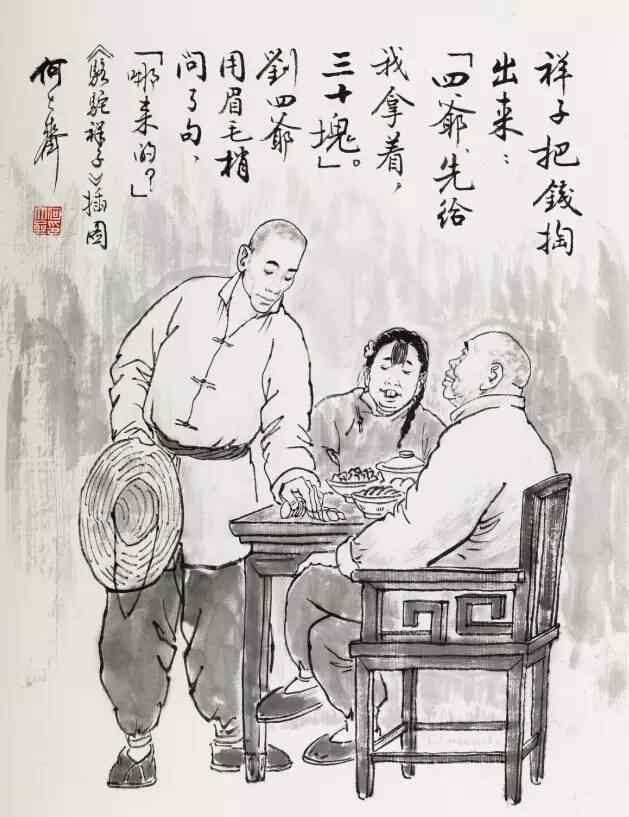 祥子把錢掏
出来：
「四爺、先给
我拿着，
三十塊」。
劉四爺
用眉毛梢
问了句，
「哪来的？」
《駱駝祥子》插图
何大齊